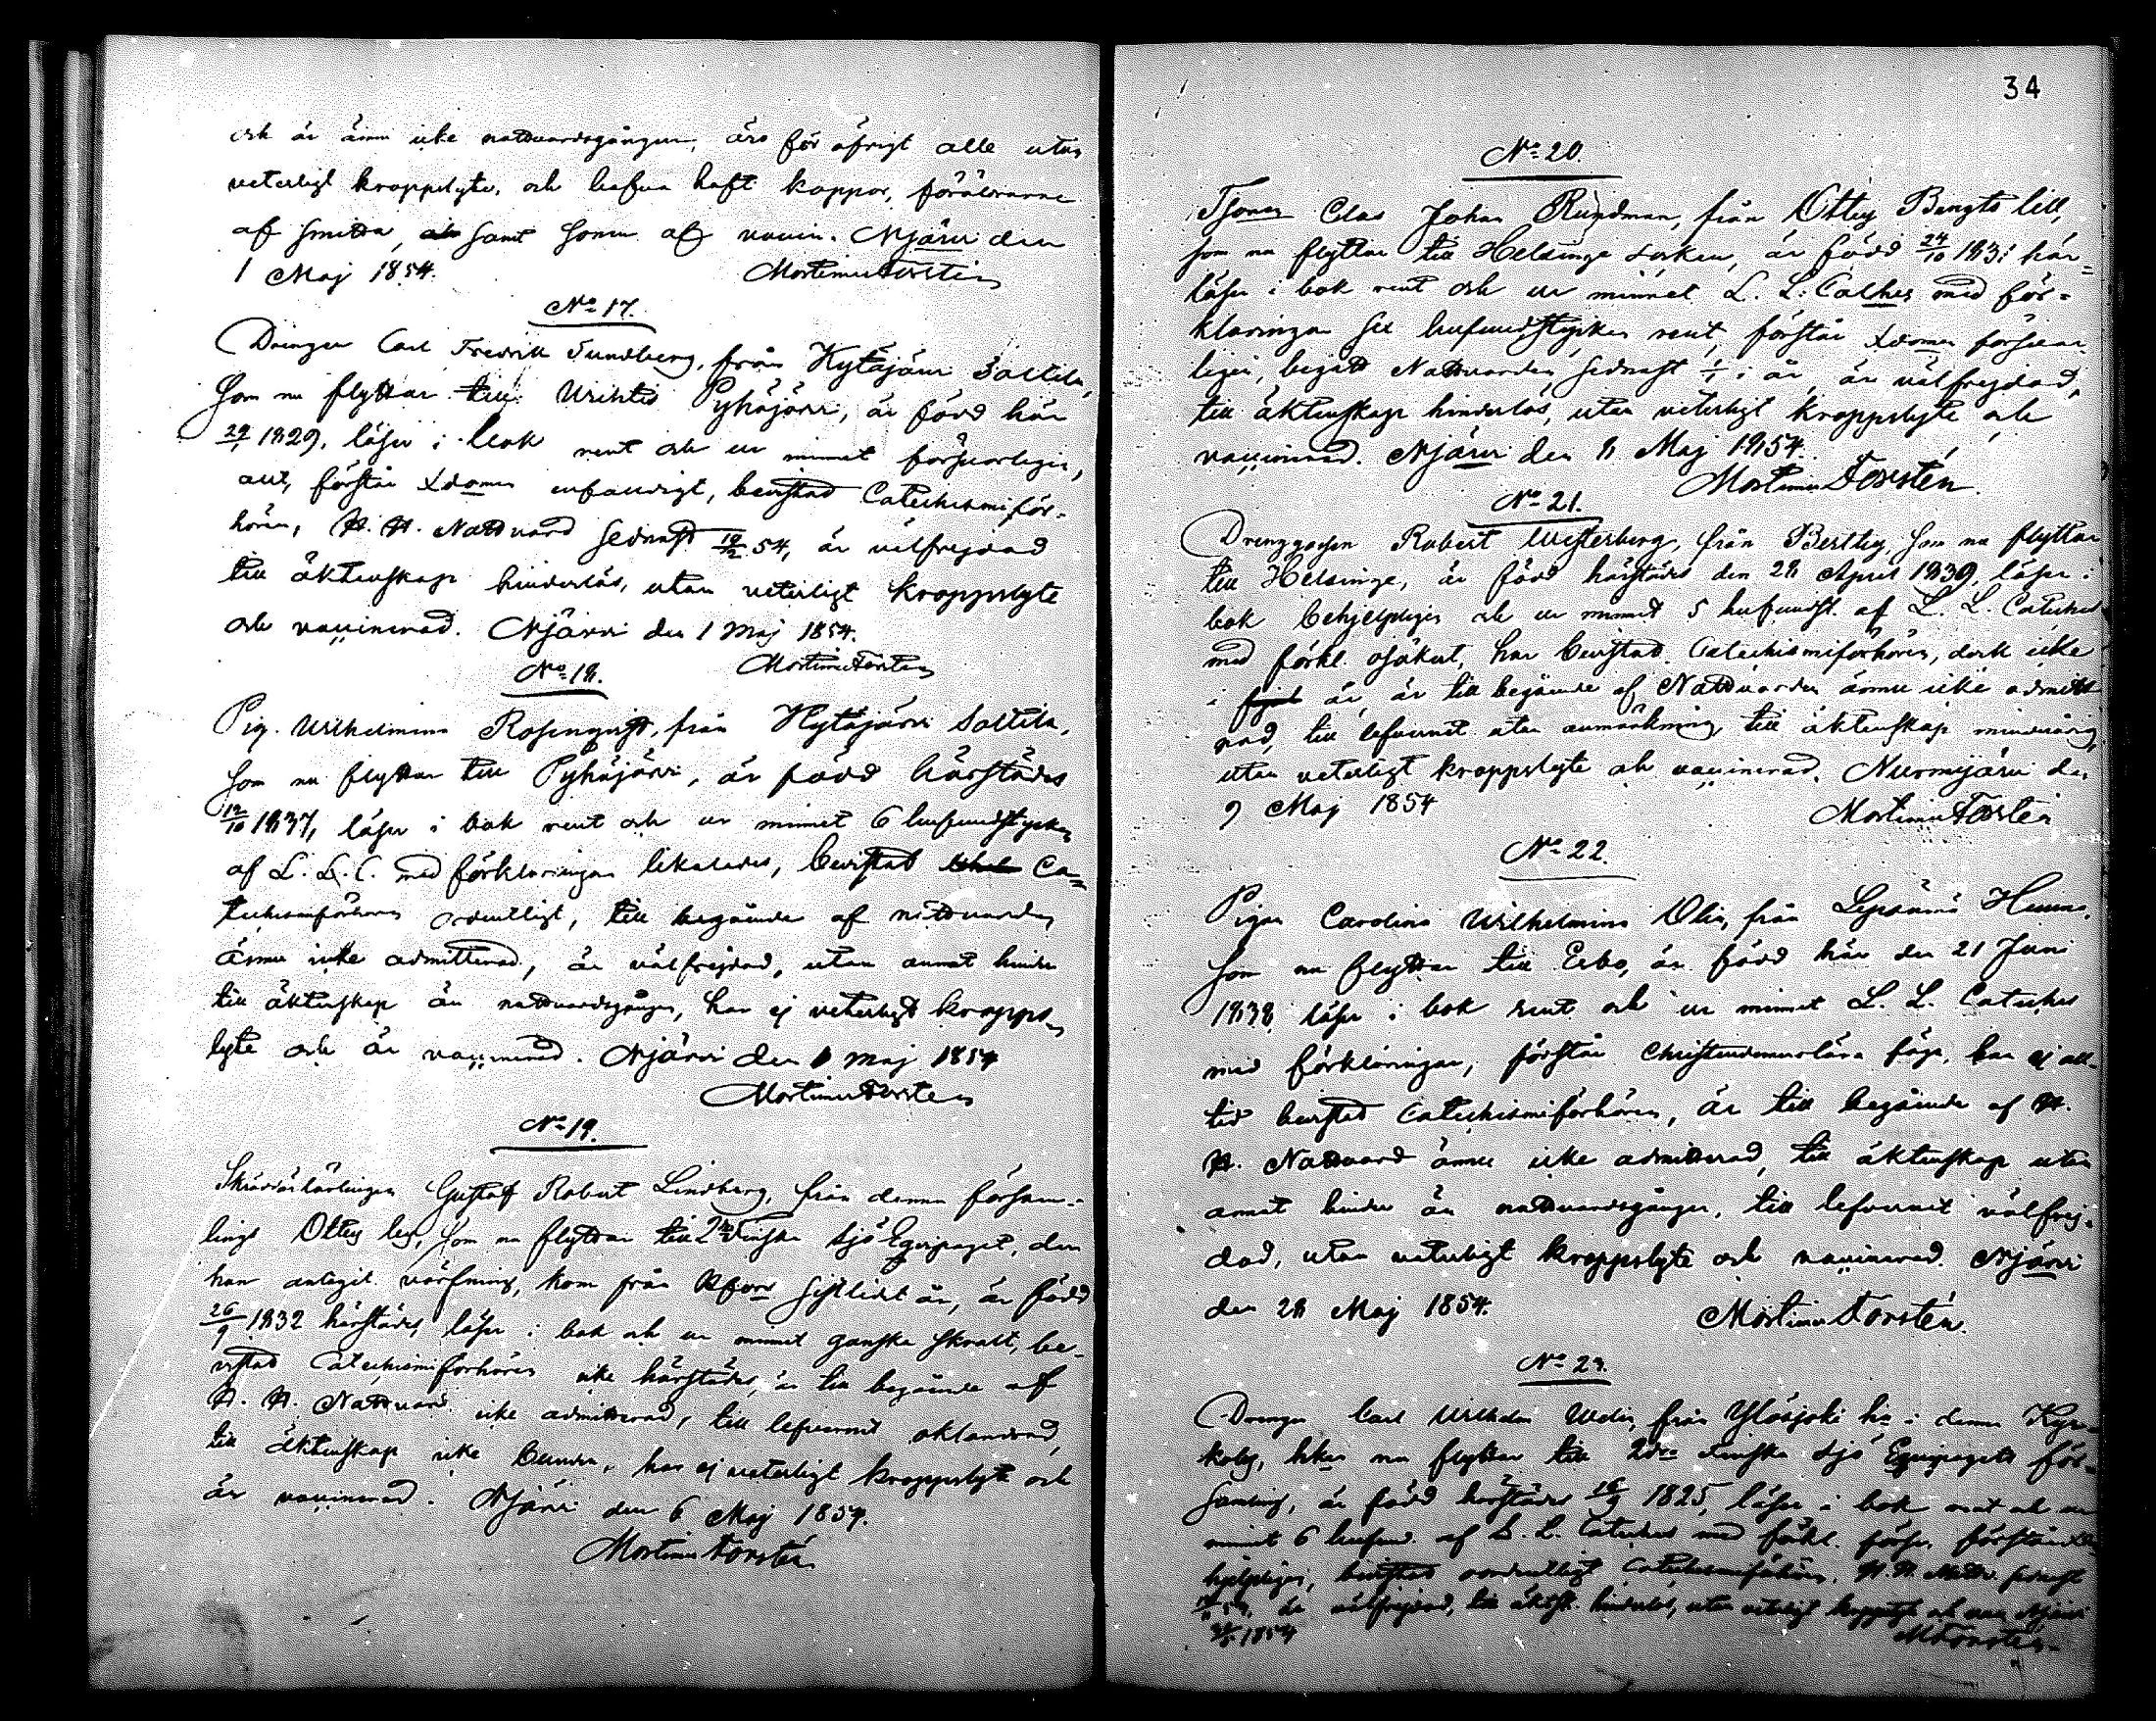 och är ännu icke nattvardsgången, äro för öfrigt alle utan
veterligt kroppslyte, och hafva haft koppor, föräldrarne
af smitta, samt sonen af vaccin. Njärvi den
1 Maj 1854. Mortimer Forstén
No 17.
Drängen Carl Fredrik Sundberg, från Kytäjärvi Saltila,
som nu flyttar till Wichtis Pyhäjärvi, är född här
1829, läser i bok rent och ur minnet försvarligen,
allt, förstår Xdomen enfaldigt, bevistad Catechismiför-
hören, H. H. Nattvard sednast 19/2 54, är välfrejdad
till äktenskap hinderlös, utan veterligt kroppslyte
och vaccinerad. Njärvi den 1 Maj 1854.
Mortimer Forstén
No 18.
Pig. Wilhelmina Rosenqvist, från Hytäjärvi Saltila,
som nu flyttar till Pyhäjärvi, är född härstädes
19/10 1837, läser i bok rent och ur minnet 6 hufvudstycken
af L. L. C. med förklaringen likaledes, bevistat Ca-
techismiförhören ordentligt, till begående af nattvarden
ännu icke admitterad, är välfrejdad, utan annat hinder
till äktenskap än nattvardsgången, har ej veterligt kropps-
lyte och är vaccinerad. Njärvi den 1 Maj 1854
Mortimer Forstén
No 19.
Skräddarlärlingen Gustaf Robert Lindberg, från denna försam-
lings Ottby by, som nu flyttar till 2dra Finska Sjö Equipaget, der
han antagit värfning, kom från Hfors sistlidet år, är född
26/9 1832 härstädes, läser i bok och ur minnet ganska skralt, be-
vistad Catechismiförhören icke härstädes, är till begående af
H. H. Nattvard icke admitterad, till lefvernet oklandrad,
till äktenskap icke bunden, har ej veterligt kroppslyte och
är vaccinerad. Njärvi den 6 Maj 1854.
Mortimer Forstén
34
No 20.
Tjonen Clas Johan Rundman, från Ottby Bengts lill,
som nu flyttar till Helsinge socken, är född 24/10 1831 här-
läser i bok rent och ur minnet L. L: Cathes med för-
klaringen sex hufvudstycken rent, förstår Xdomen försvar-
ligen, begått Nattvarden sednast 1/1 i år, är välfrejdad,
till äktenskap hinderlös, utan veterligt kroppslyte och
vaccinerad. Njärvi den 8 Maj 1854.
Mortimer Forstén.
No 21.
Drenggossen Robert Westerberg, från Bertby, som nu flyttar
till Helsinge, är född härstädes den 28 April 1839, läser i
bok behjelpligen och ur minnet 5 hufvudst. af L. L. Cateches
med förkl. osäkert, har bevistad Catechismiförhören, dock icke
i år, är till begående af Nattvarden ännu icke admitte
rad, till lefvernet utan anmärkning, till äktenskap minderårig,
utan veterligt kroppslyte och vaccinerad. Nurmijärvi den
9 Maj 1854 Mortimer Forstén
No 22.
Pigan Carolina Wilhelmina Olin, från Lepsämä
som nu flyttar till Esbo, är född här den 21 Juni
1838, läser i bok rent och ur minnet L. L. Cateches
med förklaringen, förstår Christendomslära föga, har ej all-
tid bevistad Catechismiförhören, är till begående af H.
H. Nattvard ännu icke admitterad, till äktenskap utan
annat hinder än nattvardsgången, till lefvernet välfrej-
dad, utan veterligt kroppslyte och vaccinerad. Njärvi
den 28 Maj 1854. Mortimer Forstén.
No 23.
Drengen Carl Wilhelm från i denna Kyr-
koby, hken nu flyttar till 2dra Finska Sjö Equipagets för-
samling, är född härstädes 1825, läser i bok rent och ur
minnet 6 hufvud. af L. L. Cateches med förkl. förstår
hjelpligen, bevistad ordentligt Catechismiförhören, H. H. Nattv. sednast
välfrejdad, till äktsk. hinderlös, utan veterligt kroppslyte och vacc. Njärvi
1854 MForstén